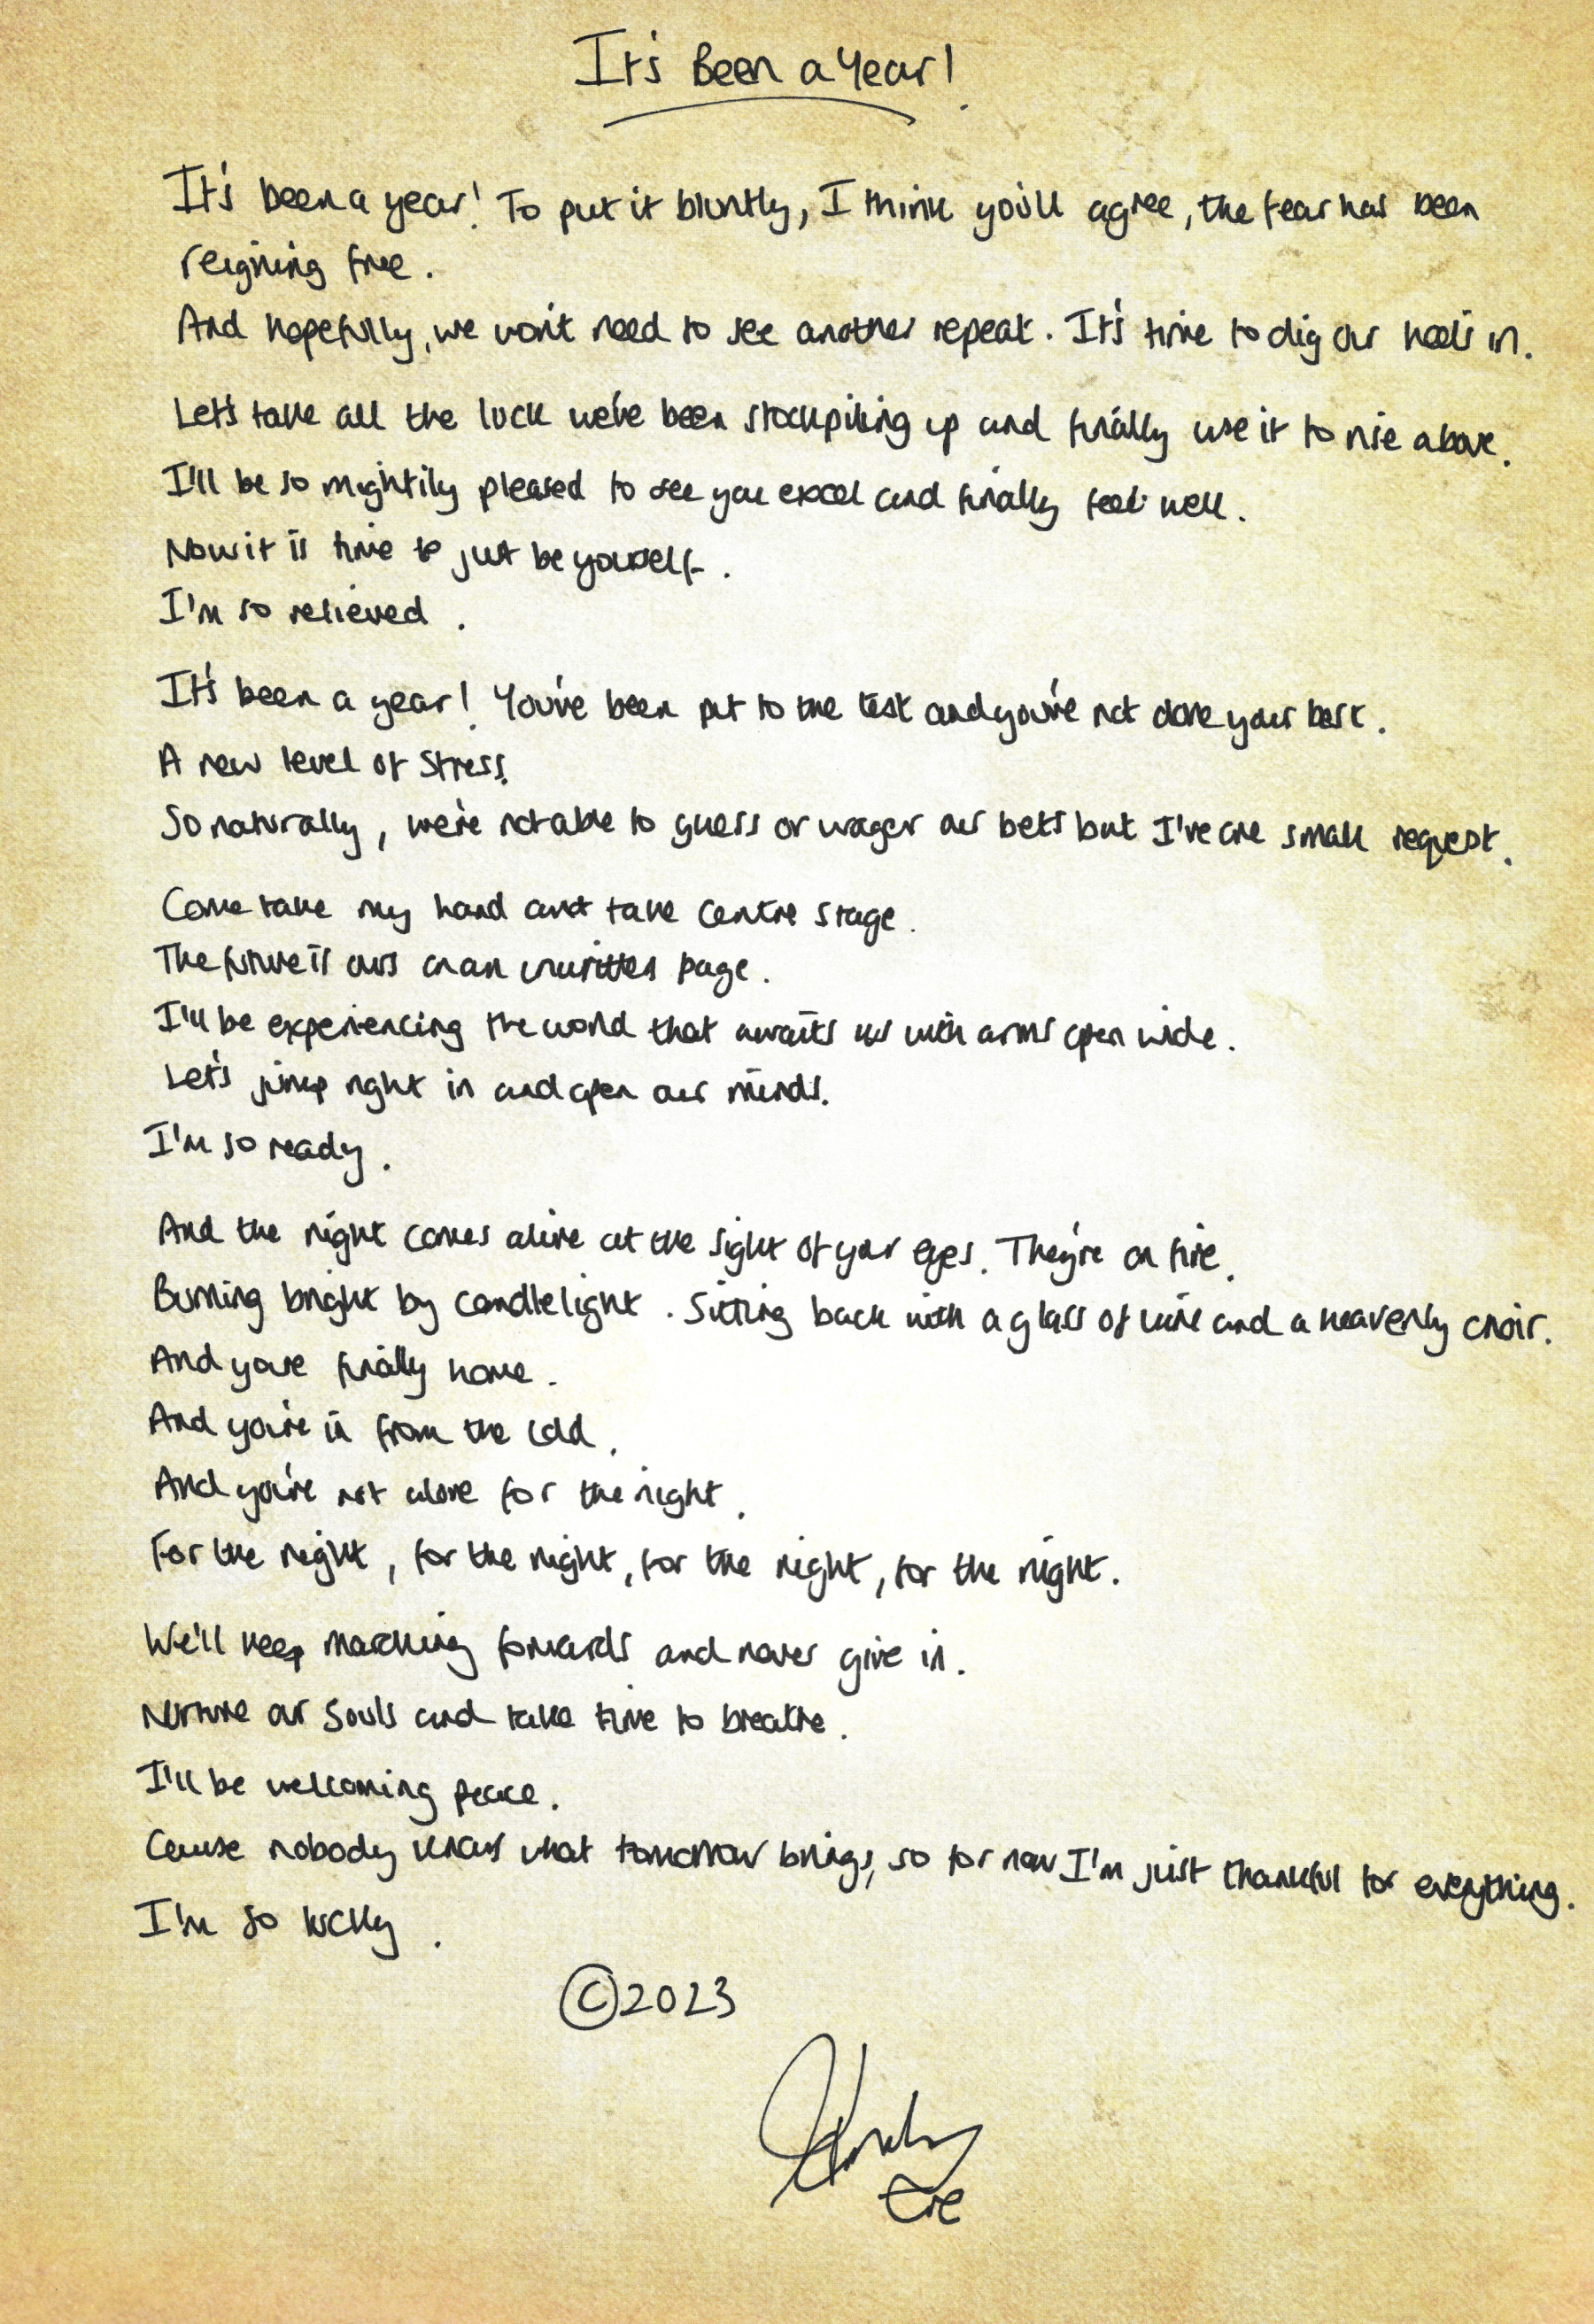 It's Been a Year!
It's been a year! To put it bluntly, I think you'll agree, the fear has been
reigning free.
And hopefully, we won't need to see another repeat. It's time to dig our heels in.
Let's take all the luck we've been stockpiling up and finally use it to rise above.
I'll be so mightily pleased to see you excel and finally feel well.
Now it is time to just be yourself.
I'm so relieved.
It's been a year! You've been put to the test and you've not done your best.
A new level of stress.
So naturally, we're not able to guess or wager our bets but I've one small request.
Come take my hand and take centre stage.
The future is ours on an unwritten page.
I'll be experiencing the world that awaits us with arms open wide.
Let's jump right in and open our minds.
I'm so ready.
And the night comes alive at the sight of your eyes. They're on fire.
Burning bright by candlelight. Sitting back with a glass of wine and a heavenly choir.
And you're finally home.
And you're in from the cold.
And you're not alone for the night.
For the night, for the night, for the night, for the night.
We'll keep marching forwards and never give in.
Nurture our souls and take time to breathe.
I'll be welcoming peace.
Cause nobody knows what tomorrow brings, so for now I'm just thankful for everything.
I'm so lucky.
©2023